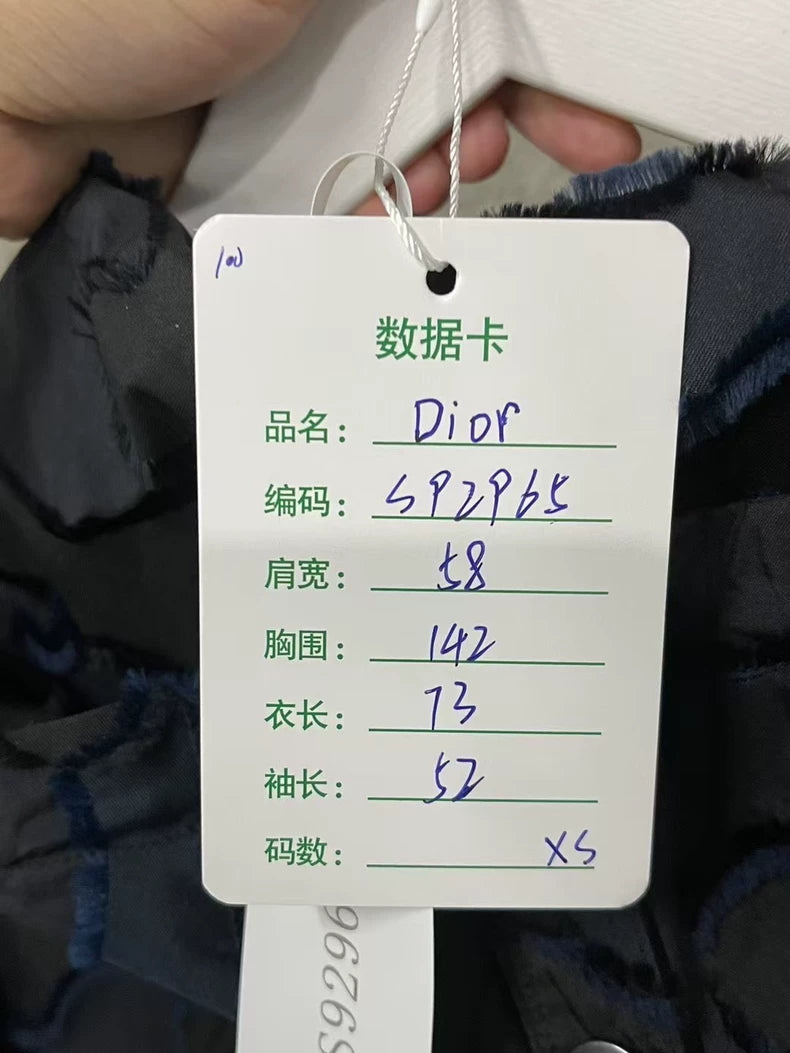 100
数据卡
品名: Dior
编码: S92965
肩宽: 58
胸围: 142
衣长: 73
袖长: 52
码数: XS
S9296